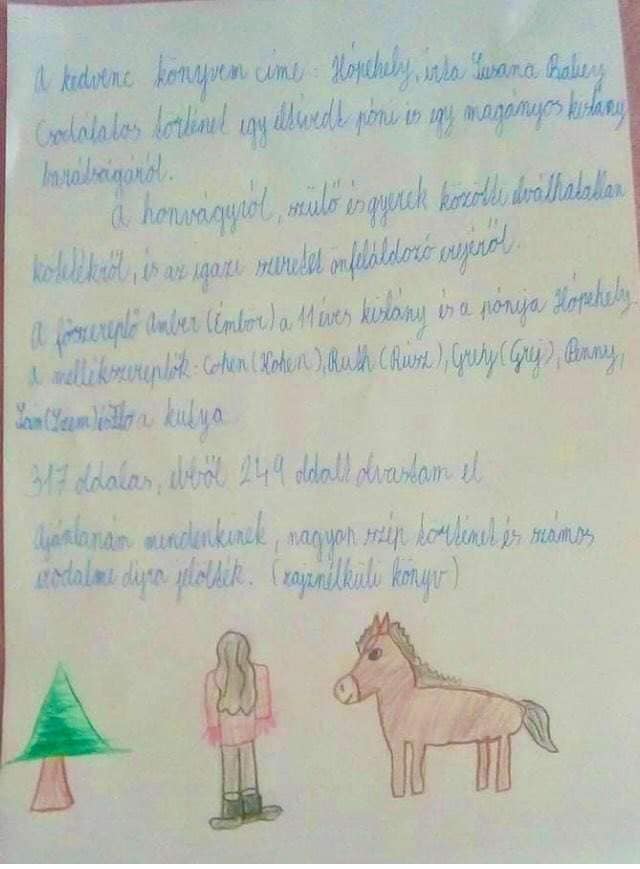 A kedvenc könyvem címe: Hópehely, írta Susana Bailey
Csodálatos történet egy eltévedt póni és egy magányos kislány
barátságáról.
A honvágyról, szülő és gyerek közötti elválhatatlan
kötelékről, és az igazi szeretet önfeláldozó erejéről.
A főszereplő Amber (Émbör) a 11 éves kislány és a pónija Hópehely,
a mellékszereplők: Cohen (Kohen), Ruth (Rúsz), Grey (Grej), Penny,
a kutya
317 oldalas, ebből 249 oldalt olvastam el
Ajánlanám mindenkinek, nagyon szép történet és számos
irodalmi díjra jelölték. (rajznélküli könyv)